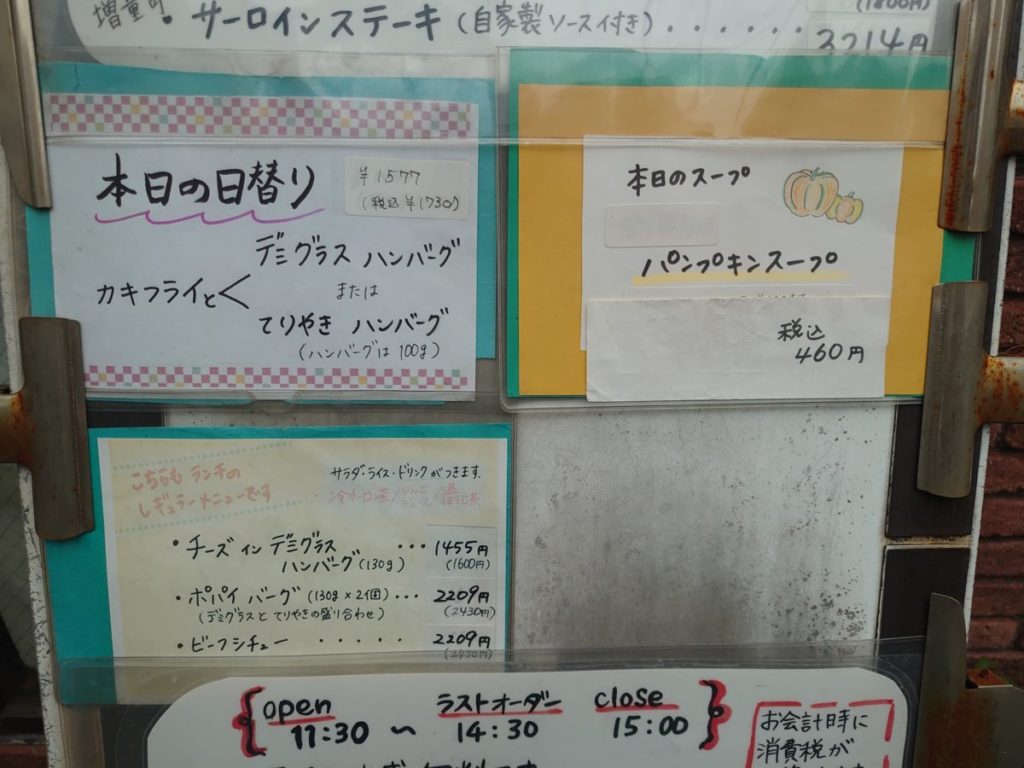 増量可
・サーロインステーキ (自家製ソース付き) ・・・・・・ 3214円
本日の日替り
¥1577
(税込¥1730)
カキフライと<
デミグラス ハンバーグ
または
てりやき ハンバーグ
(ハンバーグは100g)
本日のスープ
パンプキンスープ
税込
460円
こちらも ランチの
レギュラーメニューです
サラダ・ライス・ドリンクがつきます。
・チーズ イン デミグラス
ハンバーグ(130g) ・・・1455円
(1600円)
・ポパイ バーグ (130g×2個)・・・ 2209円
(デミグラスと てりやきの盛り合わせ) (2430円)
・ビーフシチュー ・・・・・ 2209円
(2430円)
open ラストオーダー close
11:30 〜 14:30 15:00
お会計時に
消費税が